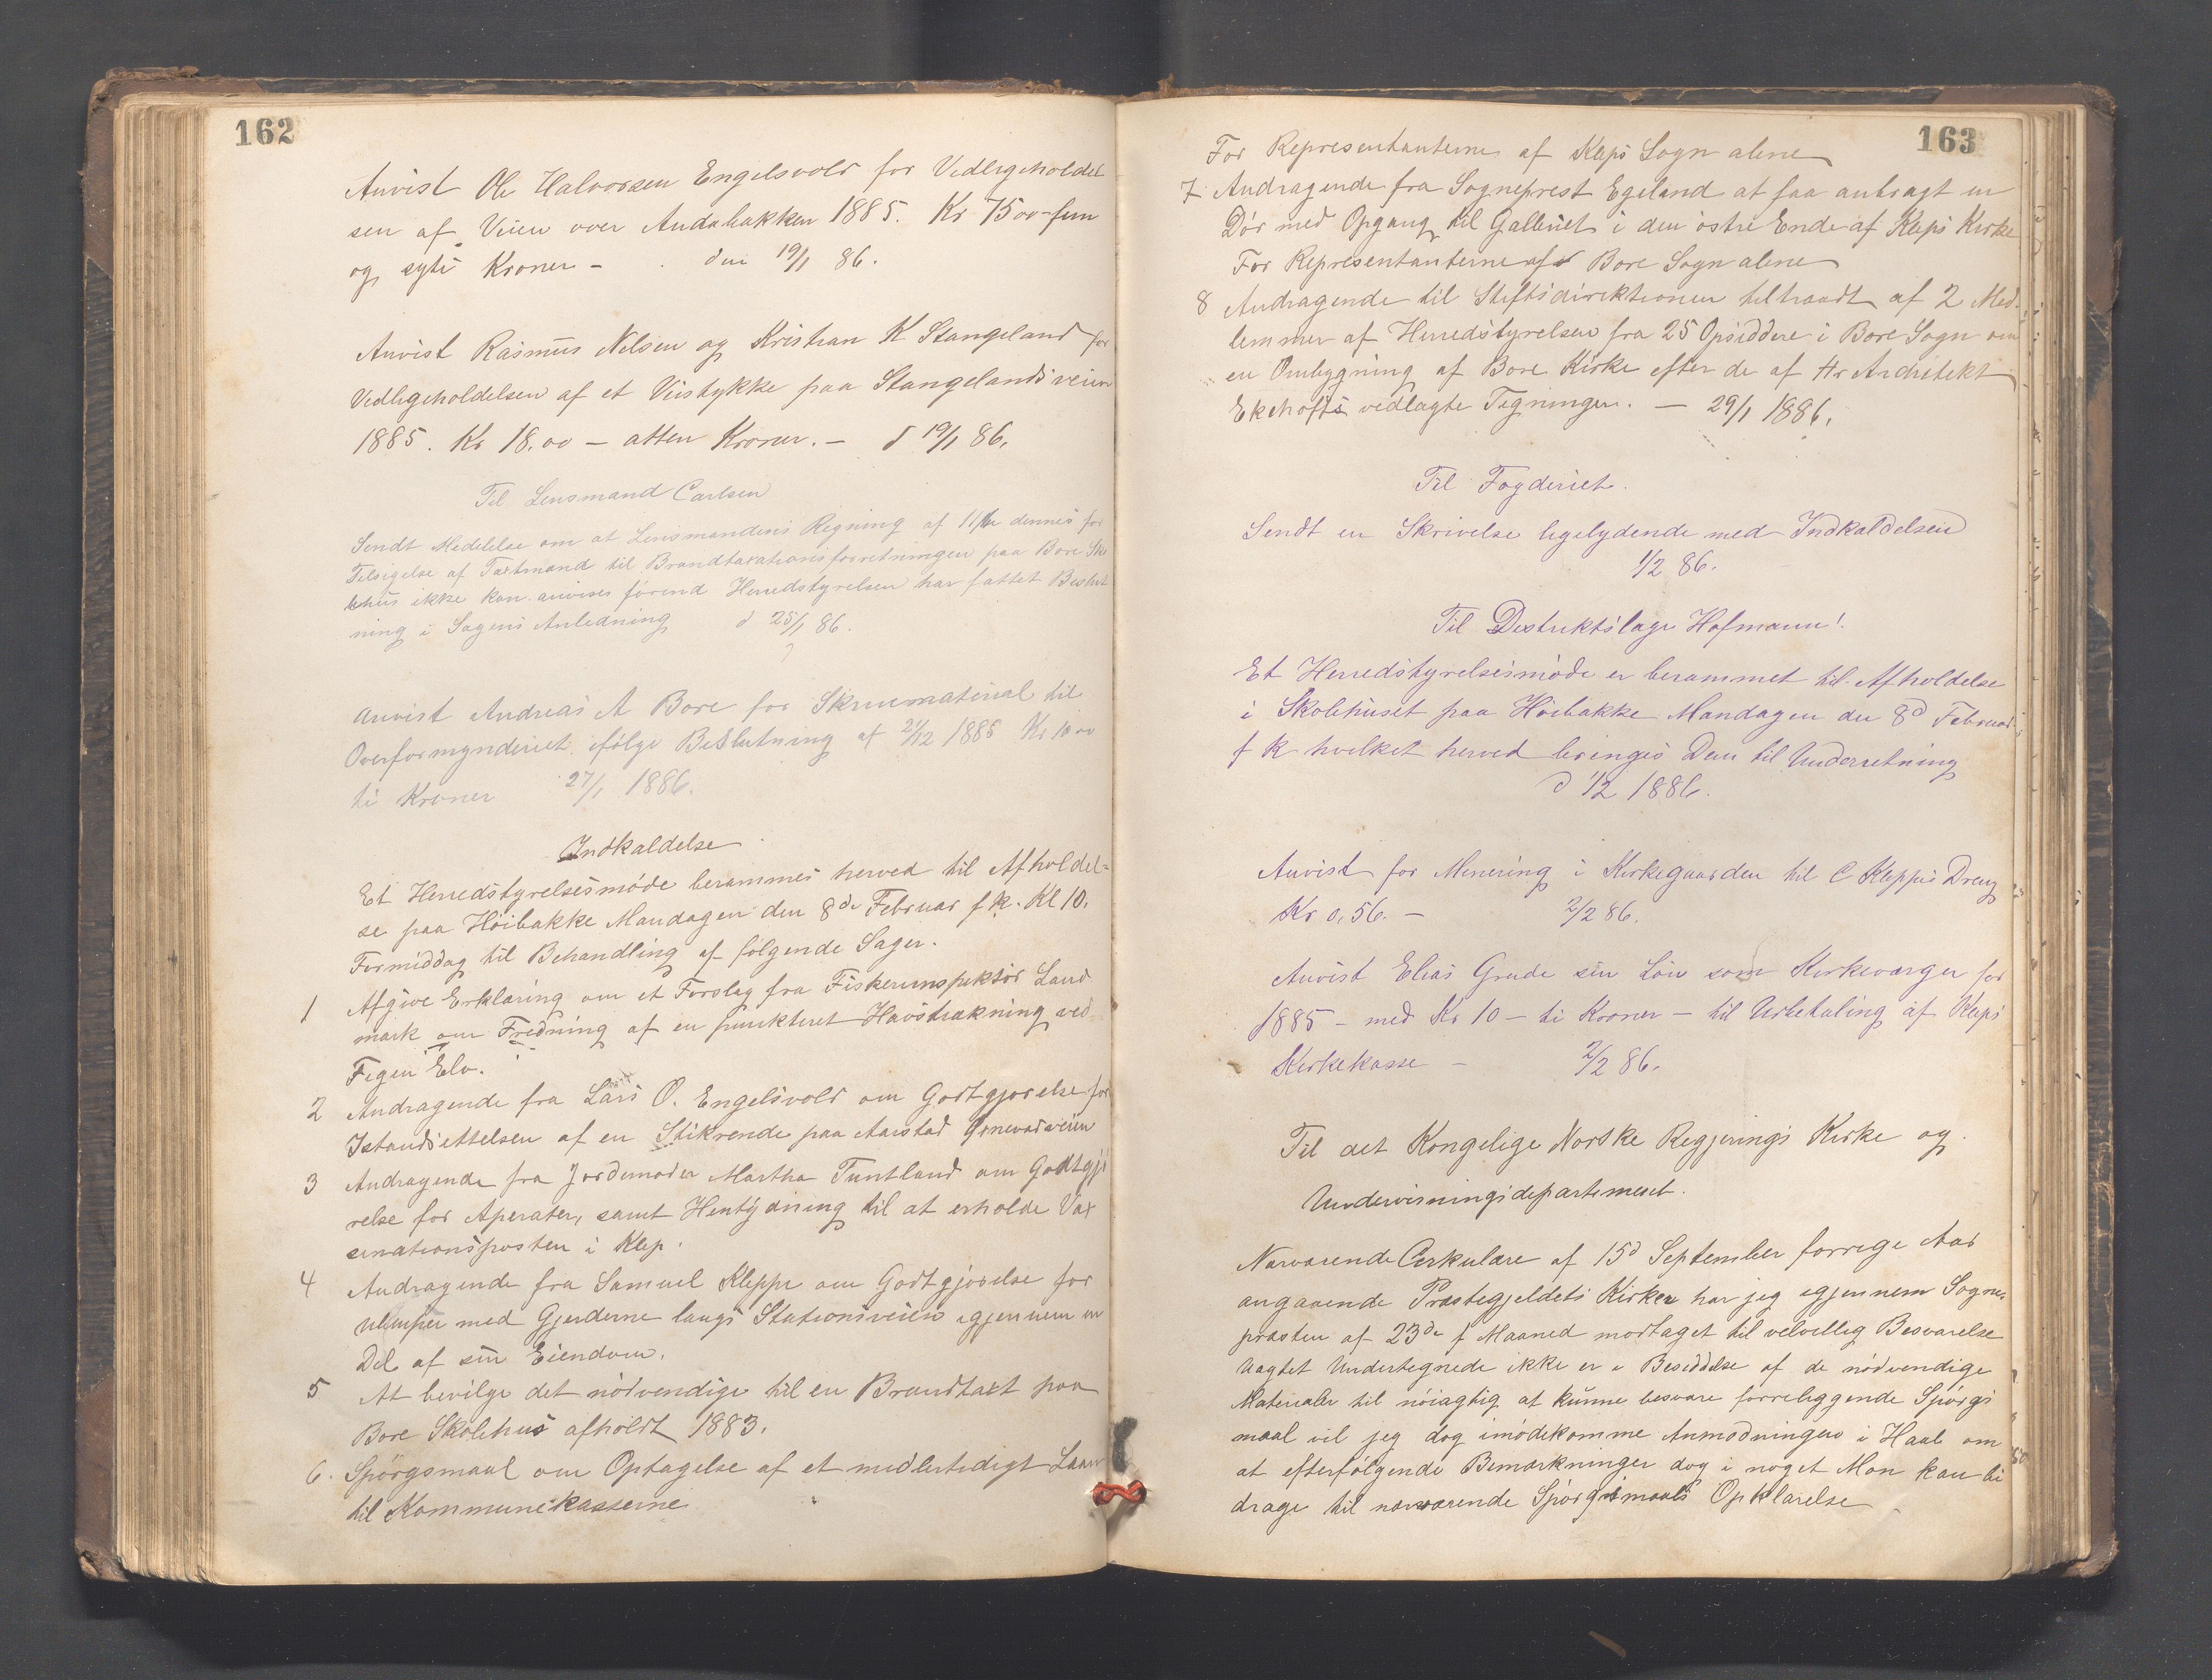 162
Anvist Ole Halvorsen Engelsvold for Vedligeholdel
sen af Veien over Andabakken 1885. Kr 75 00 - fem
og syti Kroner - den 19/1 86.
Anvist Rasmus Nilsen og Kristian K Stangeland for
Vedligeholdelsen af et Veistykke paa Stangelandsveien
1885. Kr 18,00 - atten Kroner. - d 19/1 86.
Til Lensmand Carlsen
Sendt Medelelse om at Lensmandens Regning af 11te dennes for
Tilsigelse af Taxtmænd til Brandtaxationsforretningen paa Bore Sko
lehus ikke kan anvises førend Herredstyrelsen har fattet Beslut
ning i Sagens Anledning d 25/1 86.
Anvist Andreas A Bore for Skrivematerial til
Overformynderiet ifølge Beslutning af 21/12 1885 Kr 10 00
ti Kroner 27/1 1886.
Indkaldelse
Et Herredstyrelsesmøde berammes herved til Afholdel=
se paa Høibakke Mandagen den 8de Februar f k. Kl 10.
Formiddag til Behandling af følgende Sager.
1 Afgive Erklæring om et Forslag fra Fiskeriinspektør Land
mark om Fredning af en punkteret Havstrækning ved
Figen Elv.
2 Andragende fra Lars O. Engelsvold om Godtgjørelse for
Istandsættelsen af en Stikrende paa Aarstad Grnevadveien
3 Andragende fra Jordemoder Martha Tuntland om Godtgjø
relse for Aperater, samt Hentydning til at erholde Vax
sinationsposten i Klep.
4 Andragende fra Samuel Kleppe om Godtgjørelse for
Ulemper med Gjerderne langs Stationsveien igjennem en
Del af sin Eiendom.
5 At bevilge det nødvendige til en Brandtaxt paa
Bore Skolehus afholdt 1883.
6. Spørgsmaal om Optagelse af et midlertidigt Laan
til Kommunekasserne
163
For Representanterne af Kleps Sogn alene
7 Andragende fra Sogneprest Egeland at faa anbragt en
Dør med Opgang til Galleriet i den østre Ende af Kleps Kirke
For Representanterne af Bore Sogn alene
8 Andragende til Stiftsdirektionen tiltraadt af 2 Med-
lemmer af Herredstyrelsen fra 25 Opsiddere i Bore Sogn om
en Ombygning af Bore Kirke efter de af Hr Architekt
Ekehofts vedlagte Tegninger. - 29/1 1886.
Til Fogderiet.
Sendt en Skrivelse ligelydende med Indkaldelsen
1/2 86.
Til Destriktslæge Hofmann!
Et Herredstyrelsesmøde er berammet til Afholdelse
i Skolehuset paa Høibakke Mandagen den 8d Februar
f k hvilket herved bringes Dem til Underretning
d 1/2 1886.
Anvist for Minering i Kirkegaarden til C Kleppes Dreng
Kr 0,56. - 2/2 86.
Anvist Elias Grude sin Løn som Kirkeværger for
1885 - med Kr 10 - ti Kroner - til Udbetaling af Kleps
Kirkekasse - 2/2 86.
Til det Kongelige Norske Regjerings Kirke og
Undervisningsdepartement.
Nærværende Cirkulære af 15d September forrige Aar
angaaende Præstegjeldets Kirker har jeg igjennem Sogne
præsten af 23de f Maaned modtaget til velvillig Besvarelse
Uagtet Undertegnede ikke er i Besiddelse af de nødvendige
Materialer til nøiagtig at kunne besvare forreliggende Spørgs
maal vil jeg dog imødekomme Anmodningen i Haab om
at efterfølgende Bemærkninger dog i noget Mon kan bi
drage til nærværende Spørgsmaals Opklarelse